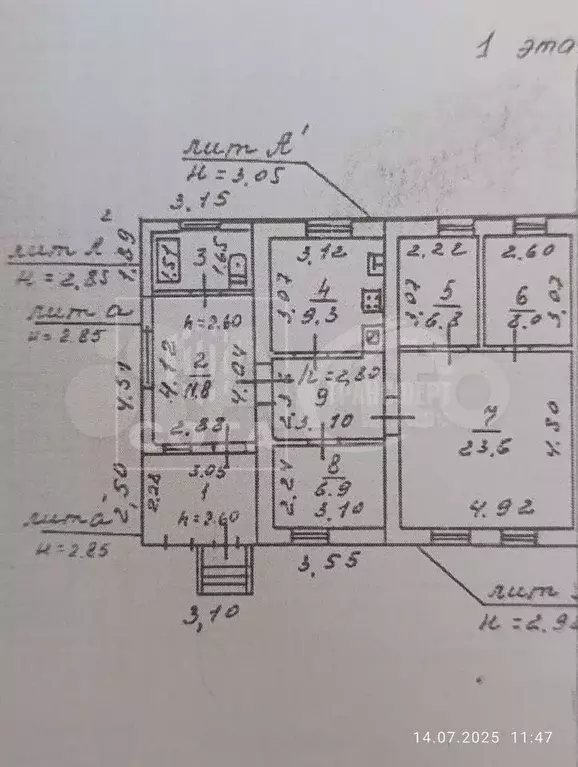 1 эта
лит А'
Н = 3,05
3,15
2
лит А
Н = 2,85
1,89
3
1,51
1,65
3,12
3,07
4
9,3
2,22
5
6.8
3,07
2,60
6
8.0
3,07
лит а
н = 2.85
h = 2.60
4,12
2
11,8
4,04
2,82
4,51
h = 2,80
9
3,10
7
23,6
4,80
4,92
2,50
2,28
3,05
1
h = 2.60
лит а'
Н = 2.85
8
6.9
2,24
3,10
3,55
3,10
лит
Н = 2.9
СОТА
14.07.2025 11:47